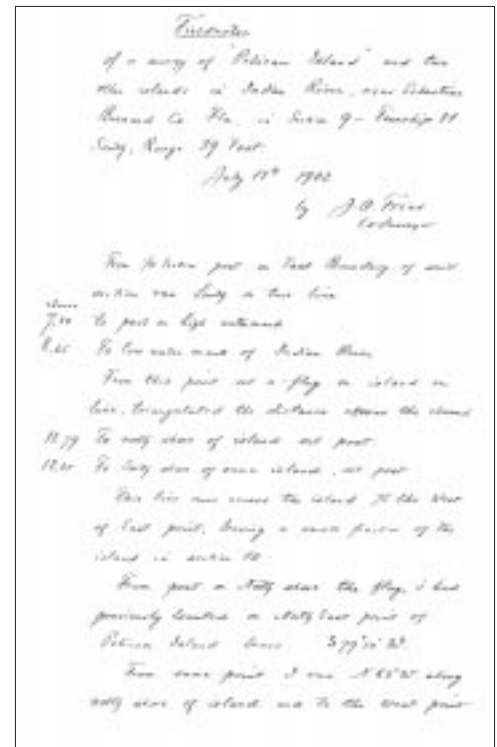 Fieldnotes
of a survey of "Pelican Island" and two
other islands in Indian River, near Sebastian
Brevard Co. Fla. in Section 9 - Township 31
South, Range 39 East.
July 1902
by J. O. Fries
Co Surveyor
From ¼ section post on East Boundary of said
section ran South on true line
chains
7.50 to post on high
8.65 To low water mark of Indian River
From this point set a flag on island on
line, triangulated the distance across the channel
18.79 To north shore of island set post
To South shore of same island, set post
This line runs across the island to the West
of East point, leaving a small portion of the
island in section 10
From post on North shore the flag, I had
previously located on North East point of
Pelican Island bears
From same point I ran along
north shore of island to the west point